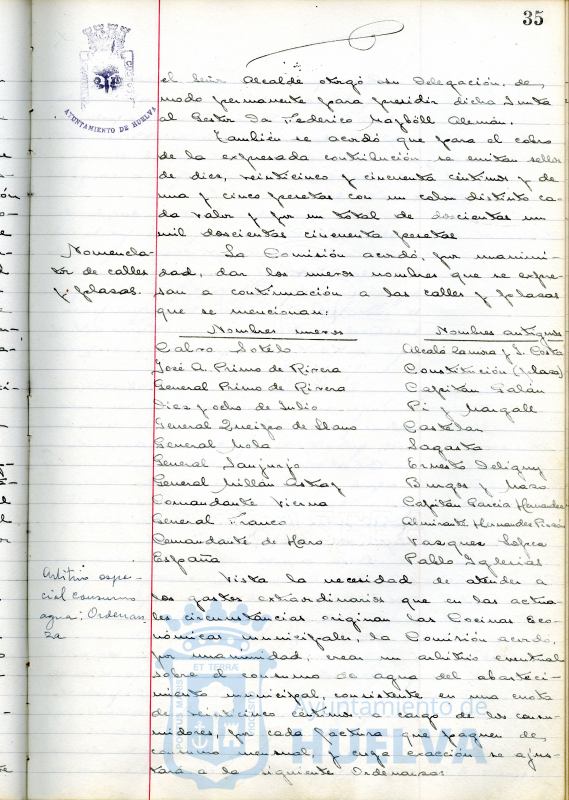 35
AYUNTAMIENTO DE HUELVA
el Señor Alcalde otorgó su Delegación, de
modo permanente para presidir dicha Junta
al Gestor Dn Federico Alemán.
También se acordó que para el cobro
de la expresada contribución se emitan sellos
de diez, veinticinco y cincuenta céntimos y de
una y cinco pesetas con un color distinto ca-
da valor y por un total de doscientas un
mil doscientas cincuenta pesetas
Nomencla-
tor de calles
y plazas.
La Comisión acordó, por unanimi-
dad, dar los nuevos nombres que se expre-
san a continuación a las calles y plazas
que se mencionan:
Nombres nuevos Nombres antiguos
Calvo Sotelo Alcalá Zamora y J. Costa
José A. Primo de Rivera Constitución (plaza)
General Primo de Rivera Capitán Galán
Diez y ocho de Julio Pi y Margall
General Queipo de Llano Castelar
General Mola Sagasta
General Sanjurjo Ernesto Deligny
General Millán Astray Burgos y Mazo
Comandante Vierna Capitán García Hernandez
General Franco Almirante Hernandez Pinzón
Comandante de Haro Vazquez López
España Pablo Iglesias
Arbitrio espe-
cial consumo
agua: Ordenan-
za
Vista la necesidad de atender a
los gastos extraordinarios que en las actua-
les circunstancias originan las Cocinas Eco-
nómicas municipales, la Comisión acordó,
por unanimidad, crear un arbitrio eventual
sobre el consumo de agua del abasteci-
miento municipal, consistente en una cuota
de veinticinco céntimos a cargo de los consu-
midores, por cada factura que paguen de
consumo mensual, y cuya exacción se ajus-
tará a la siguiente Ordenanza:
PORTUS MARIS ET TERRAE
Ayuntamiento de
HUELVA